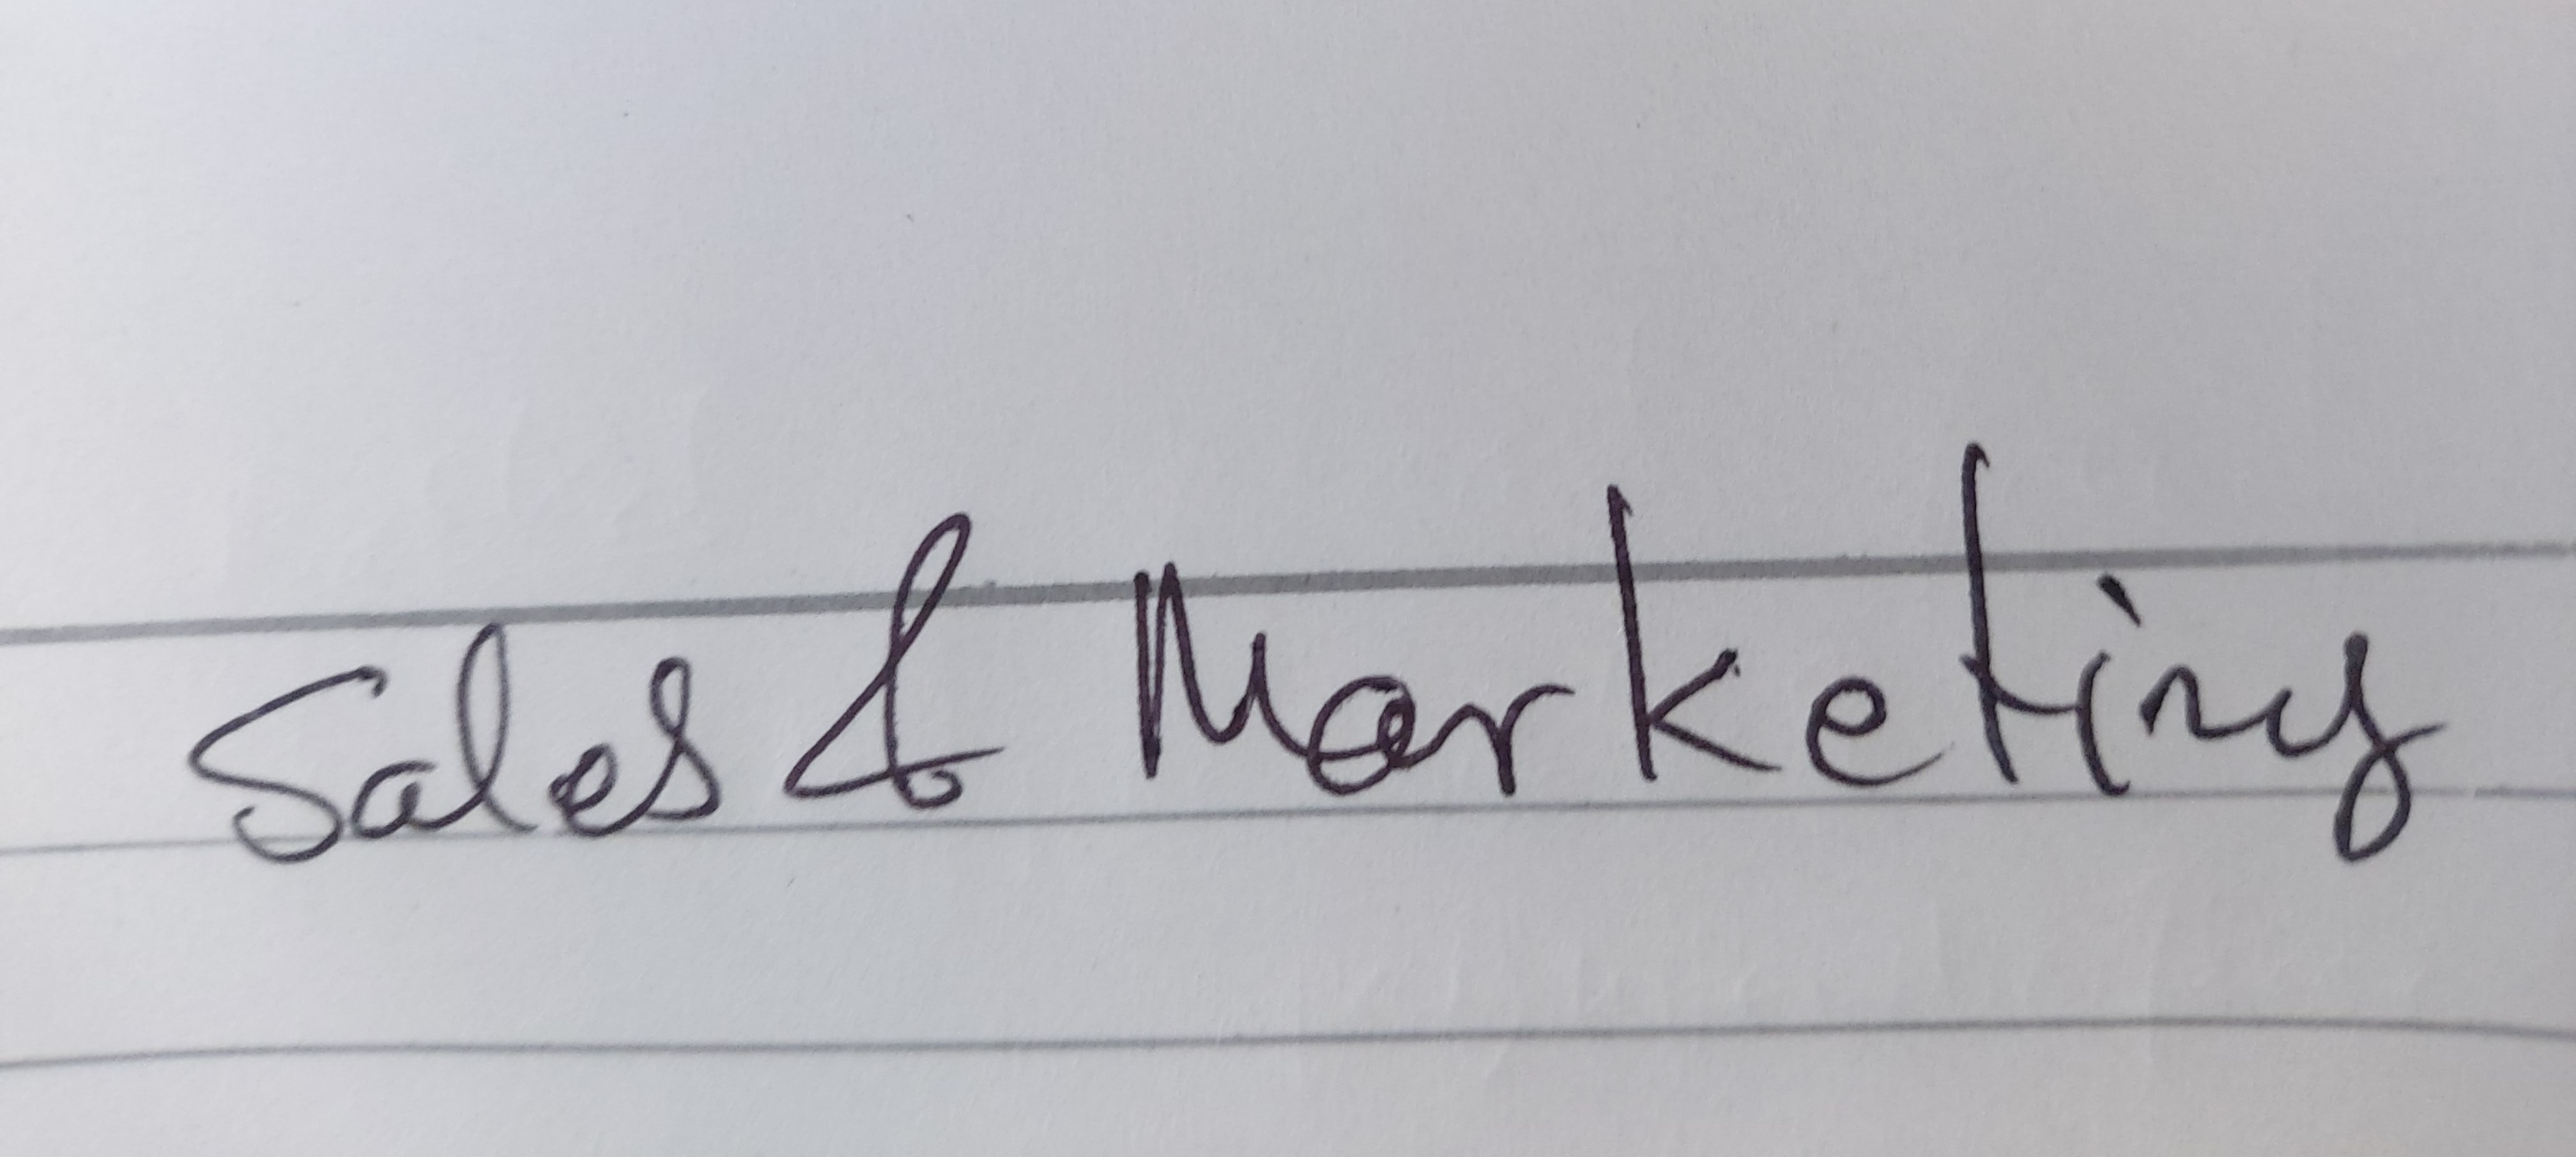 Sales & Marketing